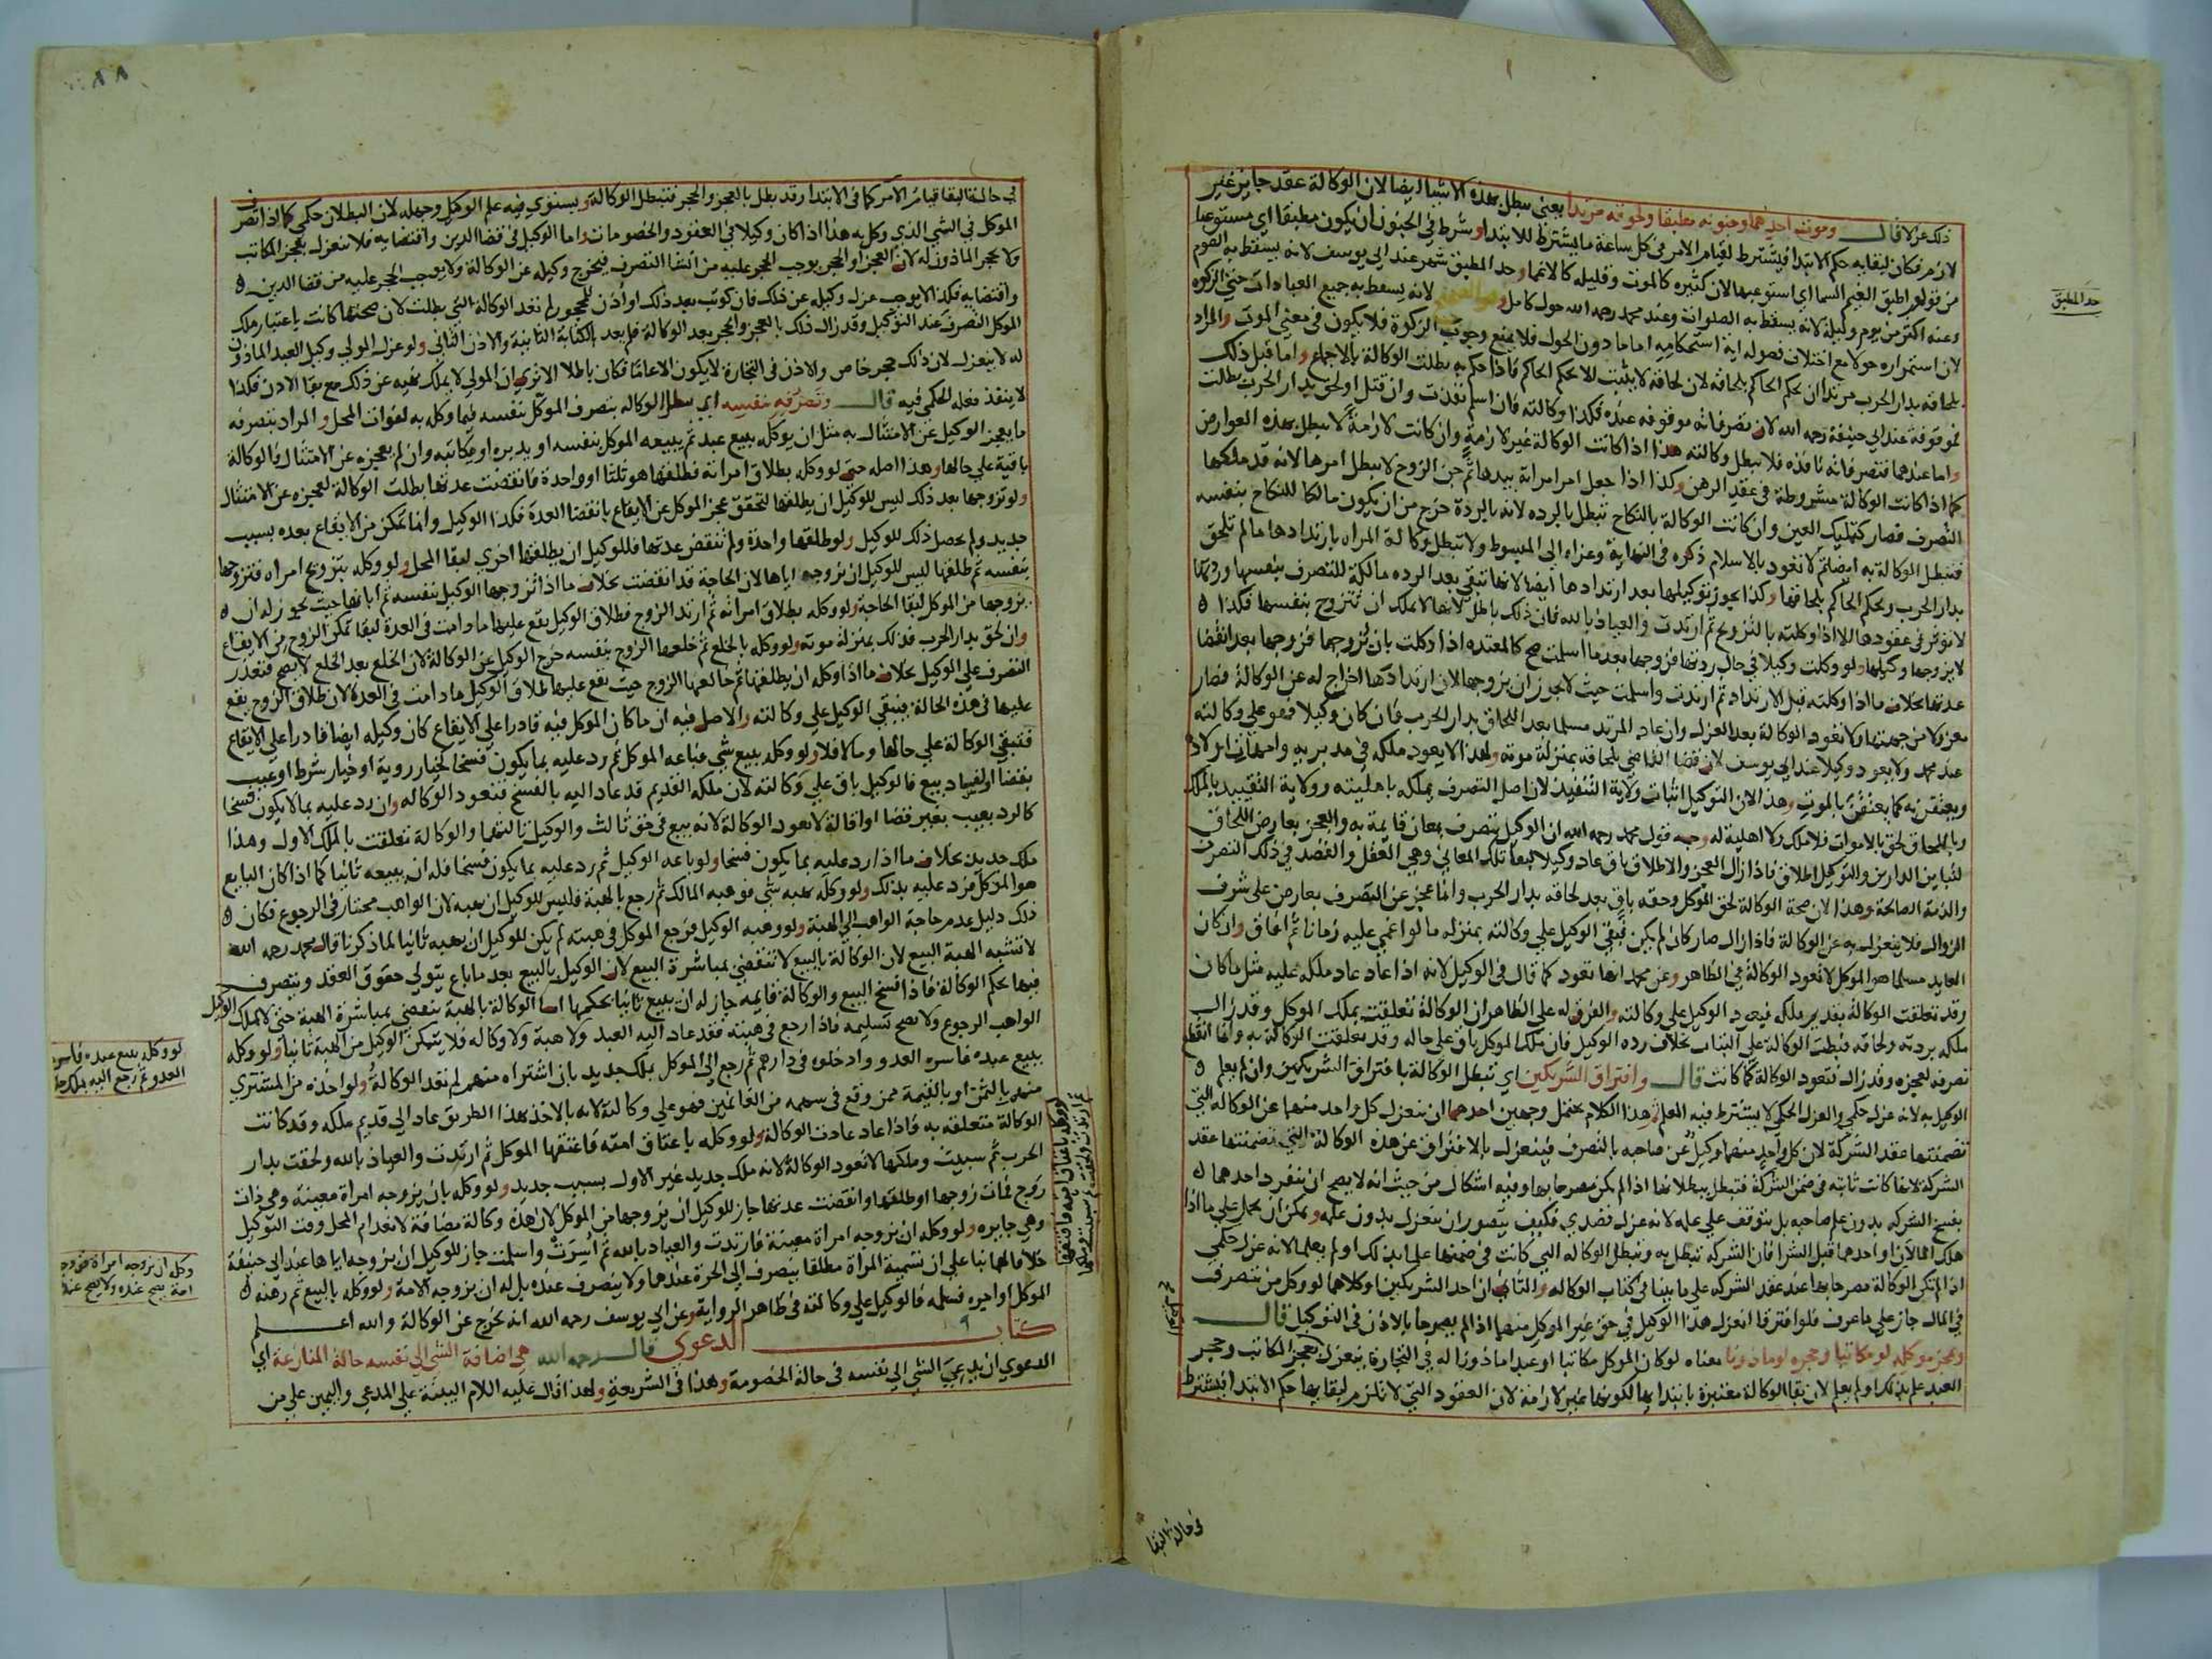 ذلك عزلا قال وموت احدهما وجنونه مطبقا ولحوقه مرتدا يعني تبطل بهذه الاشيا ايضا لان الوكالة عقد جايز غير
لازم فكان لبقايه حكم الابتدا فيشترط لقيام الامر في كل ساعة ما يشترط للابتدا وشرط في الجنون ان يكون مطبقا اي مستوعبا
من قولهم اطبق الغيم السما اي استوعبها لان كثيره كالموت وقليله كالاغما وحد المطبق شهر عند ابي يوسف لانه يسقط به الصوم
وعنه اكثر من يوم وليلة لانه يسقط به الصلوات وعند محمد رحمه الله حول كامل لانه يسقط به جميع العبادات حتى الزكوة
لان استمراره حولا مع اختلاف فصوله اية استحكامه اما ما دون الحول فلا يمنع وجوب الزكوة فلا يكون في معنى الموت والمراد
بلحاقه بدار الحرب مرتدا ان يحكم الحاكم بلحاقه لان لحاقه لا يثبت الا بحكم الحاكم فاذا حكم به بطلت الوكالة بالاجماع واما قبل ذلك
فموقوفة عند ابي حنيفة رحمه الله لان تصرفاته موقوفه عنده فكذا وكالته فان اسلم نفذت وان قتل او لحق بدار الحرب بطلت
واما عندهما فتصرفاته نافذه فلا تبطل وكالته هذا اذا كانت الوكالة غير لازمة وان كانت لازمة لا تبطل بهذه العوارض
كما اذا كانت الوكالة مشروطة في عقد الرهن وكذا اذا جعل امر امراته بيدها ثم جن الزوج لا يبطل امرها لانه قد ملكها
التصرف فصار كتمليك العين وان كانت الوكالة بالنكاح تبطل بالرده لانه بالردة خرج من ان يكون مالكا للنكاح بنفسه
فتبطل الوكالة به ايضا ثم لا تعود بالاسلام ذكره في النهاية وعزاه الى المبسوط ولا تبطل وكالة المراه بارتدادها ما لم تلحق
بدار الحرب ويحكم الحاكم بلحاقها وكذا يجوز توكيلها بعد ارتدادها ايضا لانها تبقى بعد الرده مالكة للتصرف بنفسها وردتها
لا توثر في عقودها الا اذا وكلته بالتزويج ثم ارتدت والعياذ بالله فان ذلك باطل لانها لا تملك ان تتزوج بنفسها فكذا
لا يزوجها وكيلها ولو وكلت وكيلا في حال ردتها فزوجها بعد ما اسلمت صح كالمعتده اذا وكلت بان يزوجها فزوجها بعد انقضا
عدتها بخلاف ما اذا وكلته قبل الارتداد ثم ارتدت واسلمت حيث لا يجوز ان يزوجها لان ارتدادها اخراج له عن الوكالة فصار
معزولا من جهتها ولا تعود الوكالة بعد العزل وان عاد المرتد مسلما بعد اللحاق بدار الحرب فان كان وكيلا فهو على وكالته
عند محمد ولا يعود وكيلا عند ابي يوسف لان قضا القاضي بلحاقه بمنزلة موته ولهذا لا يعود ملكه في مدبريه وامهات اولاده
ويعتقن به كما يعتقن بالموت وهذا لان التوكيل اثبات ولاية التنفيذ لان اصل التصرف يملكه باهليته وولاية التنفيذ بالملك
وباللحاق لحق بالاموات فلا ملك ولا اهلية له وجه قول محمد رحمه الله ان الوكيل يتصرف بمعان قايمة به والعجز بعارض اللحاق
لتباين الدارين والتوكيل اطلاق فاذا زال العجز والاطلاق باق عاد وكيلا لبقا تلك المعاني وهي العقل والقصد في ذلك التصرف
والذمة الصالحة وهذا لان صحة الوكالة لحق الموكل وحقه باق بعد لحاقه بدار الحرب وانما عجز عن التصرف بعارض على شرف
الزوال فلا ينعزل به عن الوكالة فاذا زال صار كان لم يكن فبقي الوكيل على وكالته بمنزله ما لو اغمي عليه زمانا ثم افاق وان كان
العايد مسلما هو الموكل لا تعود الوكالة في الظاهر وعن محمد انها تعود كما قال في الوكيل لانه اذا عاد عاد ملكه عليه مثل ما كان
وقد تعلقت الوكالة بقديم ملكه فيعود الوكيل على وكالته والفرق له على الظاهر ان الوكالة تعلقت بملك الموكل وقد زال
ملكه بردته ولحاقه فبطلت الوكالة على البتات بخلاف رده الوكيل فان ملك الموكل باق على حاله وقد تعلقت الوكالة به وانما انقطع
تصرفه لعجزه وقد زال فتعود الوكالة كما كانت قال وافتراق الشريكين اي تبطل الوكالة بافتراق الشريكين وان لم يعلم
الوكيل به لانه عزل حكمي والعزل الحكمي لا يشترط فيه العلم وهذا الكلام يحتمل وجهين احدهما ان ينعزل كل واحد منهما عن الوكاله التي
تضمنتها عقد الشركة لان كل واحد منهما وكيل عن صاحبه بالتصرف فينعزل بالافتراق عن هذه الوكالة التي تضمنتها عقد
الشركة لانها كانت ثابته في ضمن الشركة فتبطل ببطلانها اذا لم يكن مصرحا بها وفيه اشكال من حيث انه لا يصح ان ينفرد احدهما
بفسخ الشركه بدون علم صاحبه بل يتوقف على علمه لانه عزل قصدي فكيف يتصور ان ينعزل بدون علمه ويمكن ان يحمل على ما اذا
هلك المالان او احدهما قبل الشرا فان الشركه تبطل به وتبطل الوكاله التي كانت في ضمنها علما بذلك او لم يعلما لانه عزل حكمي
اذا لم تكن الوكالة مصرحا بها عند عقد الشركه على ما بينا في كتاب الوكاله والثاني ان احد الشريكين او كلاهما لو وكل من يتصرف
في المال جاز على ما عرف فلو افترقا انعزل هذا الوكيل في حق غير الموكل منهما اذا لم يصرحا بالاذن في التوكيل قال
وعجز موكله لو مكاتبا وحجره لو ماذونا معناه لو كان الموكل مكاتبا او عبدا ماذونا له في التجارة ينعزل بعجز المكاتب وحجر
العبد علم بذلك او لم يعلم لان بقا الوكالة معتبرة بابتدايها لكونها غير لازمة لان العقود التي لا تلزم لبقايها حكم الابتدا فيشترط
حد المطبق
في حالة البقا
٨٨
في حالة البقا قيام الامر كما في الابتدا وقد بطل بالعجز والحجر فتبطل الوكالة ويستوي فيه علم الوكيل وجهله لان البطلان حكمي كما اذا تصرف
الموكل في الشي الذي وكل به هذا اذا كان وكيلا في العقود والخصومات واما الوكيل في قضا الدين واقتضايه فلا ينعزل بعجز المكاتب
ولا بحجر الماذون له لان العجز او الحجر يوجب الحجر عليه من انشا التصرف فيخرج وكيله عن الوكالة ولا يوجب الحجر عليه من قضا الدين
واقتضايه فكذا لا يوجب عزل وكيله عن ذلك فان كوتب بعد ذلك او اذن للمحجور لم تعد الوكالة التي بطلت لان صحتها كانت باعتبار ملك
الموكل التصرف عند التوكيل وقد زال ذلك بالعجز والحجر بعد الوكالة فلم يعد بالكتابة الثانية والاذن الثاني ولو عزل المولى وكيل العبد الماذون
له لا ينعزل لان ذلك حجر خاص والاذن في التجارة لا يكون الا عاما فكان باطلا الا ترى ان المولى لا يملك نهيه عن ذلك مع بقا الاذن فكذا
لا ينفذ فعله الحكمي فيه قال وتصرفه بنفسه اي تبطل الوكاله بتصرف الموكل بنفسه فيما وكل به لفوات المحل والمراد بتصرفه
ما يعجز الوكيل عن الامتثال به مثل ان يوكله ببيع عبد ثم يبيعه الموكل بنفسه او يدبره او يكاتبه وان لم يعجزه عن الامتثال فالوكالة
باقية على حالها وهذا اصله حتى لو وكل بطلاق امراته فطلقها هو ثلثا او واحدة فانقضت عدتها بطلت الوكالة لعجزه عن الامتثال
ولو تزوجها بعد ذلك ليس للوكيل ان يطلقها لتحقق عجز الموكل عن الايقاع بانقضا العدة فكذا الوكيل وانما تمكن من الايقاع بعده بسبب
جديد ولم يحصل ذلك للوكيل ولو طلقها واحدة ولم تنقض عدتها فللوكيل ان يطلقها اخرى لبقا المحل ولو وكله بتزويج امراه فتزوجها
بنفسه ثم طلقها ليس للوكيل ان يزوجه اياها لان الحاجة قد انقضت بخلاف ما اذا تزوجها الوكيل بنفسه ثم ابانها حيث يجوز له ان
يزوجها من الموكل لبقا الحاجة ولو وكله بطلاق امراته ثم ارتد الزوج فطلاق الوكيل يقع عليها ما دامت في العدة لبقا تمكن الزوج من الايقاع
وان لحق بدار الحرب فذلك بمنزلة موته ولو وكله بالخلع ثم خلعها الزوج بنفسه خرج الوكيل عن الوكالة لان الخلع بعد الخلع لا يصح فتعذر
التصرف على الوكيل بخلاف ما اذا وكله ان يطلقها ثم خالعها الزوج حيث يقع عليها طلاق الوكيل ما دامت في العدة لان طلاق الزوج يقع
عليها في هذه الحالة فيبقى الوكيل على وكالته والاصل فيه ان ما كان الموكل فيه قادرا على الايقاع كان وكيله ايضا قادرا على الايقاع
فتبقى الوكالة على حالها وما لا فلا ولو وكله ببيع شي فباعه الموكل ثم رد عليه بما يكون فسخا كخيار روية او خيار شرط او عيب
بقضا او لفساد بيع فالوكيل باق على وكالته لان ملكه القديم قد عاد اليه بالفسخ فتعود الوكاله وان رد عليه بما لا يكون فسخا
كالرد بعيب بغير قضا او اقالة لا تعود الوكالة لانه بيع في حق ثالث والوكيل ثالثهما والوكالة تعلقت بالملك الاول وهذا
ملك جديد بخلاف ما اذا رد عليه بما يكون فسخا ولو باعه الوكيل ثم رد عليه بما يكون فسخا فله ان يبيعه ثانيا كما اذا كان البايع
هو الموكل فرد عليه بذلك ولو وكله بهبه شي فوهبه المالك ثم رجع بالهبة فليس للوكيل ان يهبه لان الواهب مختار في الرجوع فكان
ذلك دليل عدم حاجة الواهب الى الهبة ولو وهبه الوكيل فرجع الموكل في هبته لم يكن للوكيل ان يهبه ثانيا لما ذكرنا قال محمد رحمه الله
لا تشبه الهبة البيع لان الوكالة بالبيع لا تنقضي بمباشرة البيع لان الوكيل بالبيع بعد ما باع يتولى حقوق العقد ويتصرف
فيها بحكم الوكالة فاذا انفسخ البيع والوكالة قايمه جاز له ان يبيع ثانيا بحكمها اما الوكالة بالهبة تنقضي بمباشرة الهبة حتى لا يملك الوكيل
الواهب الرجوع ولا يصح تسليمه فاذا رجع في هبته فقد عاد اليه العبد ولا هبة ولا وكاله فلا يتمكن الوكيل من الهبة ثانيا ولو وكله
ببيع عبده فاسره العدو وادخلوه في دارهم ثم رجع الى الموكل بملك جديد بان اشتراه منهم لم تعد الوكالة ولو اخذه من المشتري
منهم بالثمن او بالقيمة ممن وقع في سهمه من الغانمين فهو على وكالته لانه بالاخذ بهذا الطريق عاد الى قديم ملكه وقد كانت
الوكالة متعلقه به فاذا عاد عادت الوكالة ولو وكله باعتاق امته فاعتقها الموكل ثم ارتدت والعياذ بالله ولحقت بدار
الحرب ثم سبيت وملكها لا تعود الوكالة لانه ملك جديد غير الاول بسبب جديد ولو وكله بان يزوجه امراة معينة وهي ذات
زوج فمات زوجها او طلقها وانقضت عدتها جاز للوكيل ان يزوجها من الموكل لان هذه وكالة مضافة لانعدام المحل وقت التوكيل
وهي جايزه ولو وكله ان يزوجه امراة معينة فارتدت والعياذ بالله ثم اسرت واسلمت جاز للوكيل ان يزوجه اياها عند ابي حنيفة
خلافا لهما بنا على ان تسمية المراة مطلقا ينصرف الى الحرة عندهما ولا ينصرف عنده بل له ان يزوجه الامة ولو وكله بالبيع ثم رهنه
الموكل او اجره فسلمه فالوكيل على وكالته في ظاهر الرواية وعن ابي يوسف رحمه الله انه يخرج عن الوكالة والله اعلم
كتاب الدعوى قال رحمه الله هي اضافة الشي الى نفسه حالة المنازعة اي
الدعوى ان يدعي الشي الى نفسه في حالة الخصومة وهذا في الشريعة ولهذا قال عليه اللام البينة على المدعي واليمين على من
لو وكله ببيع عبده فاسره
العدو ثم رجع اليه بملك جديد
وكله ان يزوجه امراة فزوجه
امة يصح عنده ولا يصح عندهما